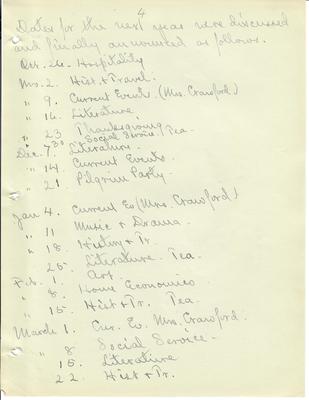 4
Dates for the next year were discussed
and finally announced as follows.
Oct. 26 - Hospitality
Nov. 2. Hist & Travel.
" 9. Current Events (Mrs. Crawford)
" 16. Literature
" 23 Thanksgiving
Social Service / Tea.
Dec. 7 Literature.
" 14 Current Events.
" 21 Pilgrim Party.
Jan 4. Current Ev (Mrs. Crawford)
" 11 Music & Drama.
" 18. History & Tr.
" 25. Literature. Tea
Feb. 1. Art.
" 8. Home Economics
" 15. Hist & Tr. Tea.
March 1. Cur. Ev. Mrs. Crawford.
" 8 Social Service -
15. Literature
22. Hist & Tr.